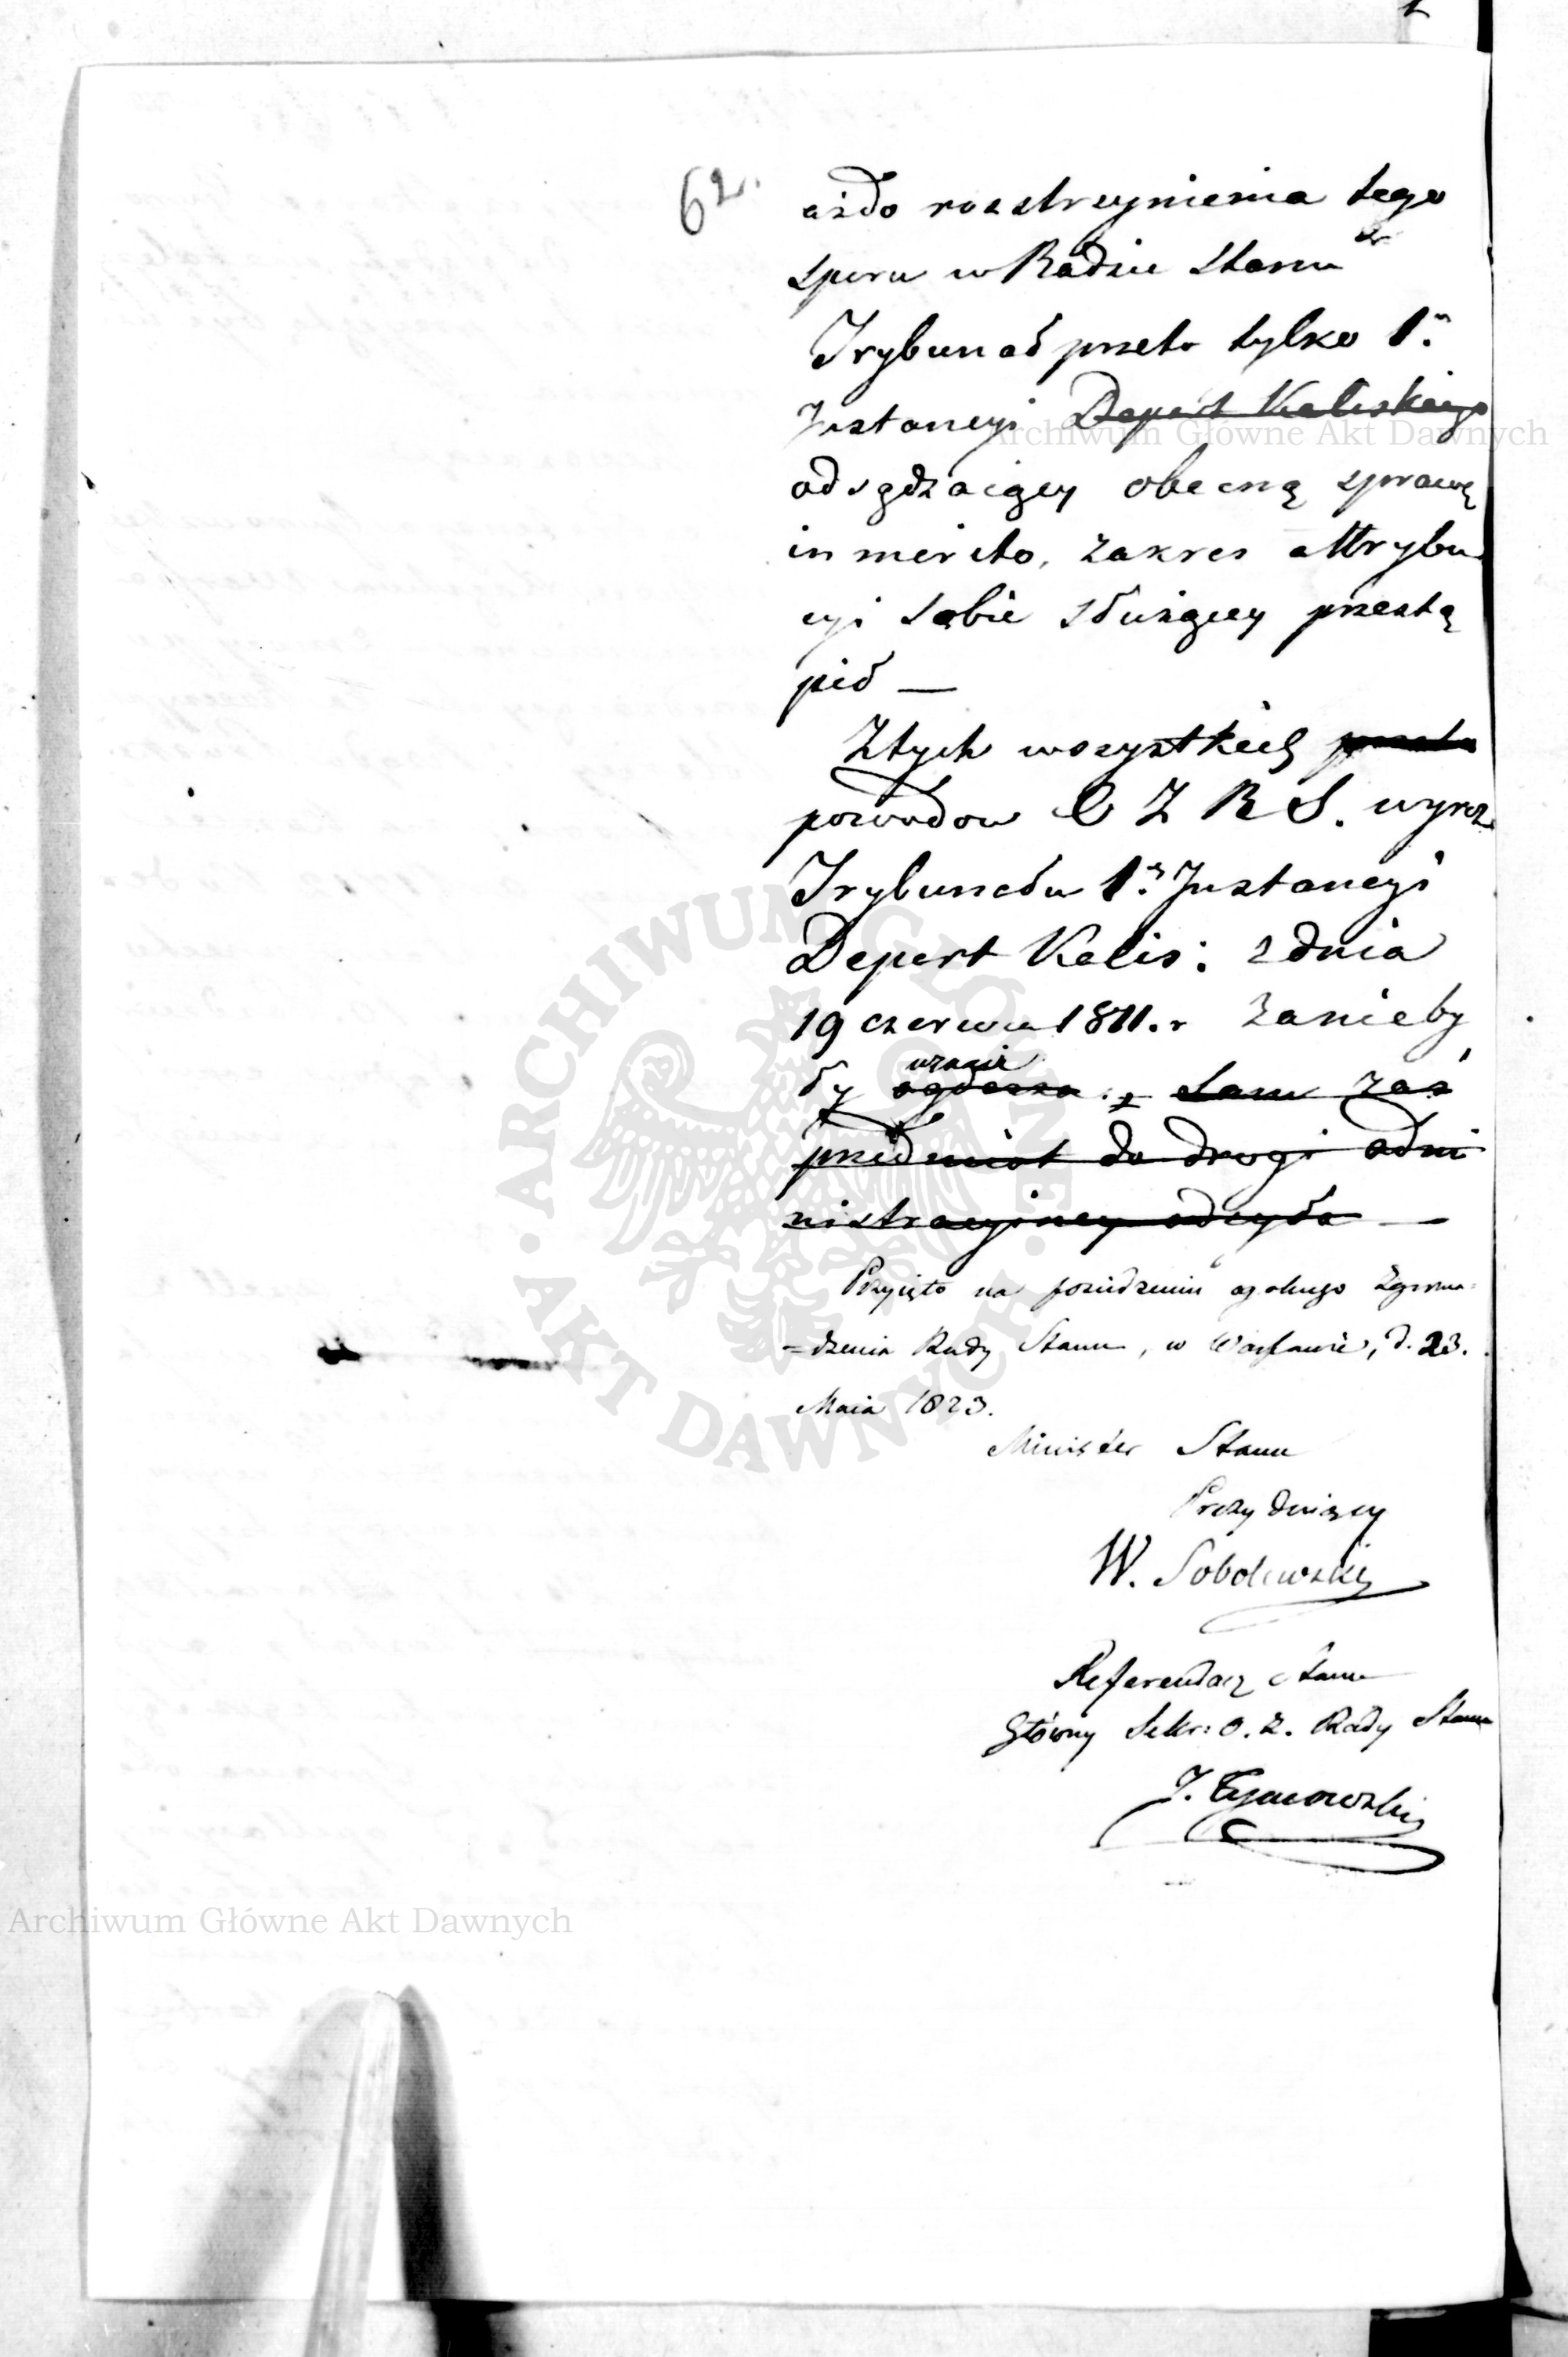 62.
aż do rozstrzygnienia tego
sporu w Radzie Stanu
Trybunał przeto tylko 1.
Instancyi Depart Kaliskiego
odsądzaiący obecną sprawę
in merito, zakres attrybu
cyi sobie służącey przestą
pił —
Z tych wszystkich przeto
powodów O Z R S. wyrok
Trybunału 1. Instancyi
Depart Kalis: z dnia
19 czerwca 1811. r za nieby
ły uznaie ogłasza: sam zaś
przedmiot do drogi admi
nistracyiney odsyła —
Przyięto na posiedzeniu ogólnego Zgroma-
=dzenia Rady Stanu, w Warszawie, d. 23.
Maia 1823.
Minister Stanu
Prezyduiący
W. Sobolewski
Referendarz Stanu
Główny Sekr: O. Z. Rady Stanu
J. Tymowski
Archiwum Główne Akt Dawnych
Archiwum Główne Akt Dawnych
ARCHIWUM GŁÓWNE AKT DAWNYCH